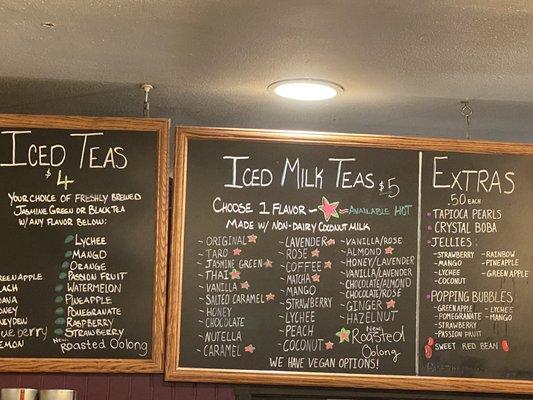 Iced Teas
$4
Your choice of freshly brewed
Jasmine Green or Black Tea
w/ any flavor below:
Lychee
Mango
Orange
Passion Fruit
Watermelon
Pineapple
Pomegranate
Raspberry
Strawberry
New
Roasted Oolong
Iced Milk Teas $5
Choose 1 Flavor = Available Hot
Made w/ Non-Dairy Coconut Milk
- Original
- Taro
- Jasmine Green
- Thai
- Vanilla
- Salted Caramel
- Honey
- Chocolate
- Nutella
- Caramel
- Lavender
- Rose
- Coffee
- Matcha
- Mango
- Strawberry
- Lychee
- Peach
- Coconut
- Vanilla/Rose
- Almond
- Honey/Lavender
- Vanilla/Lavender
- Chocolate/Almond
- Chocolate/Rose
- Ginger
- Hazelnut
New
Roasted
Oolong
We have vegan options!
Extras
.50 each
Tapioca Pearls
Crystal Boba
Jellies:
- Strawberry
- Mango
- Lychee
- Coconut
- Rainbow
- Pineapple
- Green Apple
Popping Bubbles:
- Green Apple
- Pomegranate
- Strawberry
- Passion Fruit
- Lychee
- Mango
Sweet Red Bean